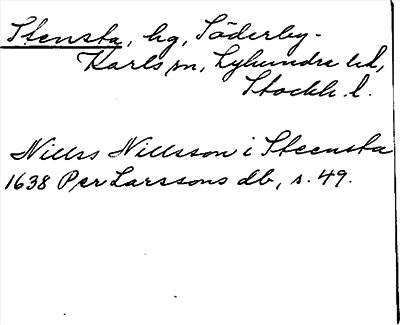 Stensta, hg, Söderby-
Karls sn, Lyhundra hd,
Stockh. l.
Nillss Nillsson i Steensta
1638 Per Larssons db, s. 49.